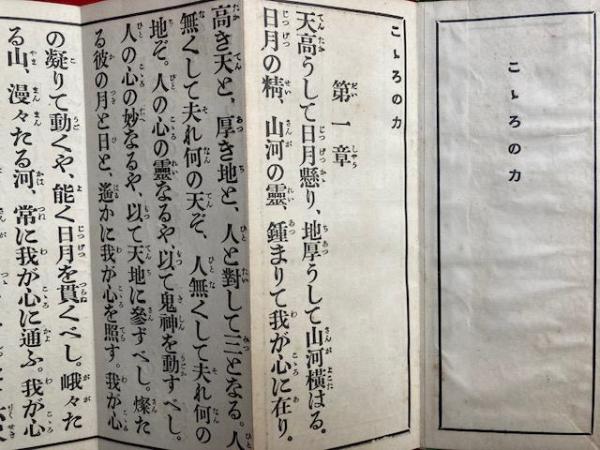 こゝろの力
こゝろの力
第一章
天高うして日月懸り、地厚うして山河横はる。
日月の精、山河の靈、鍾まりて我が心に在り。
高き天と、厚き地と、人と對して三となる。人
無くして夫れ何の天ぞ、人無くして夫れ何の
地ぞ。人の心の靈なるや、以て鬼神を動すべし。
人の心の妙なるや、以て天地に參すべし。燦た
る彼の月と日と、遙かに我が心を照す。我が心
の凝りて動くや、能く日月を貫くべし。峨々た
る山、漫々たる河、常に我が心に通ふ。我が心